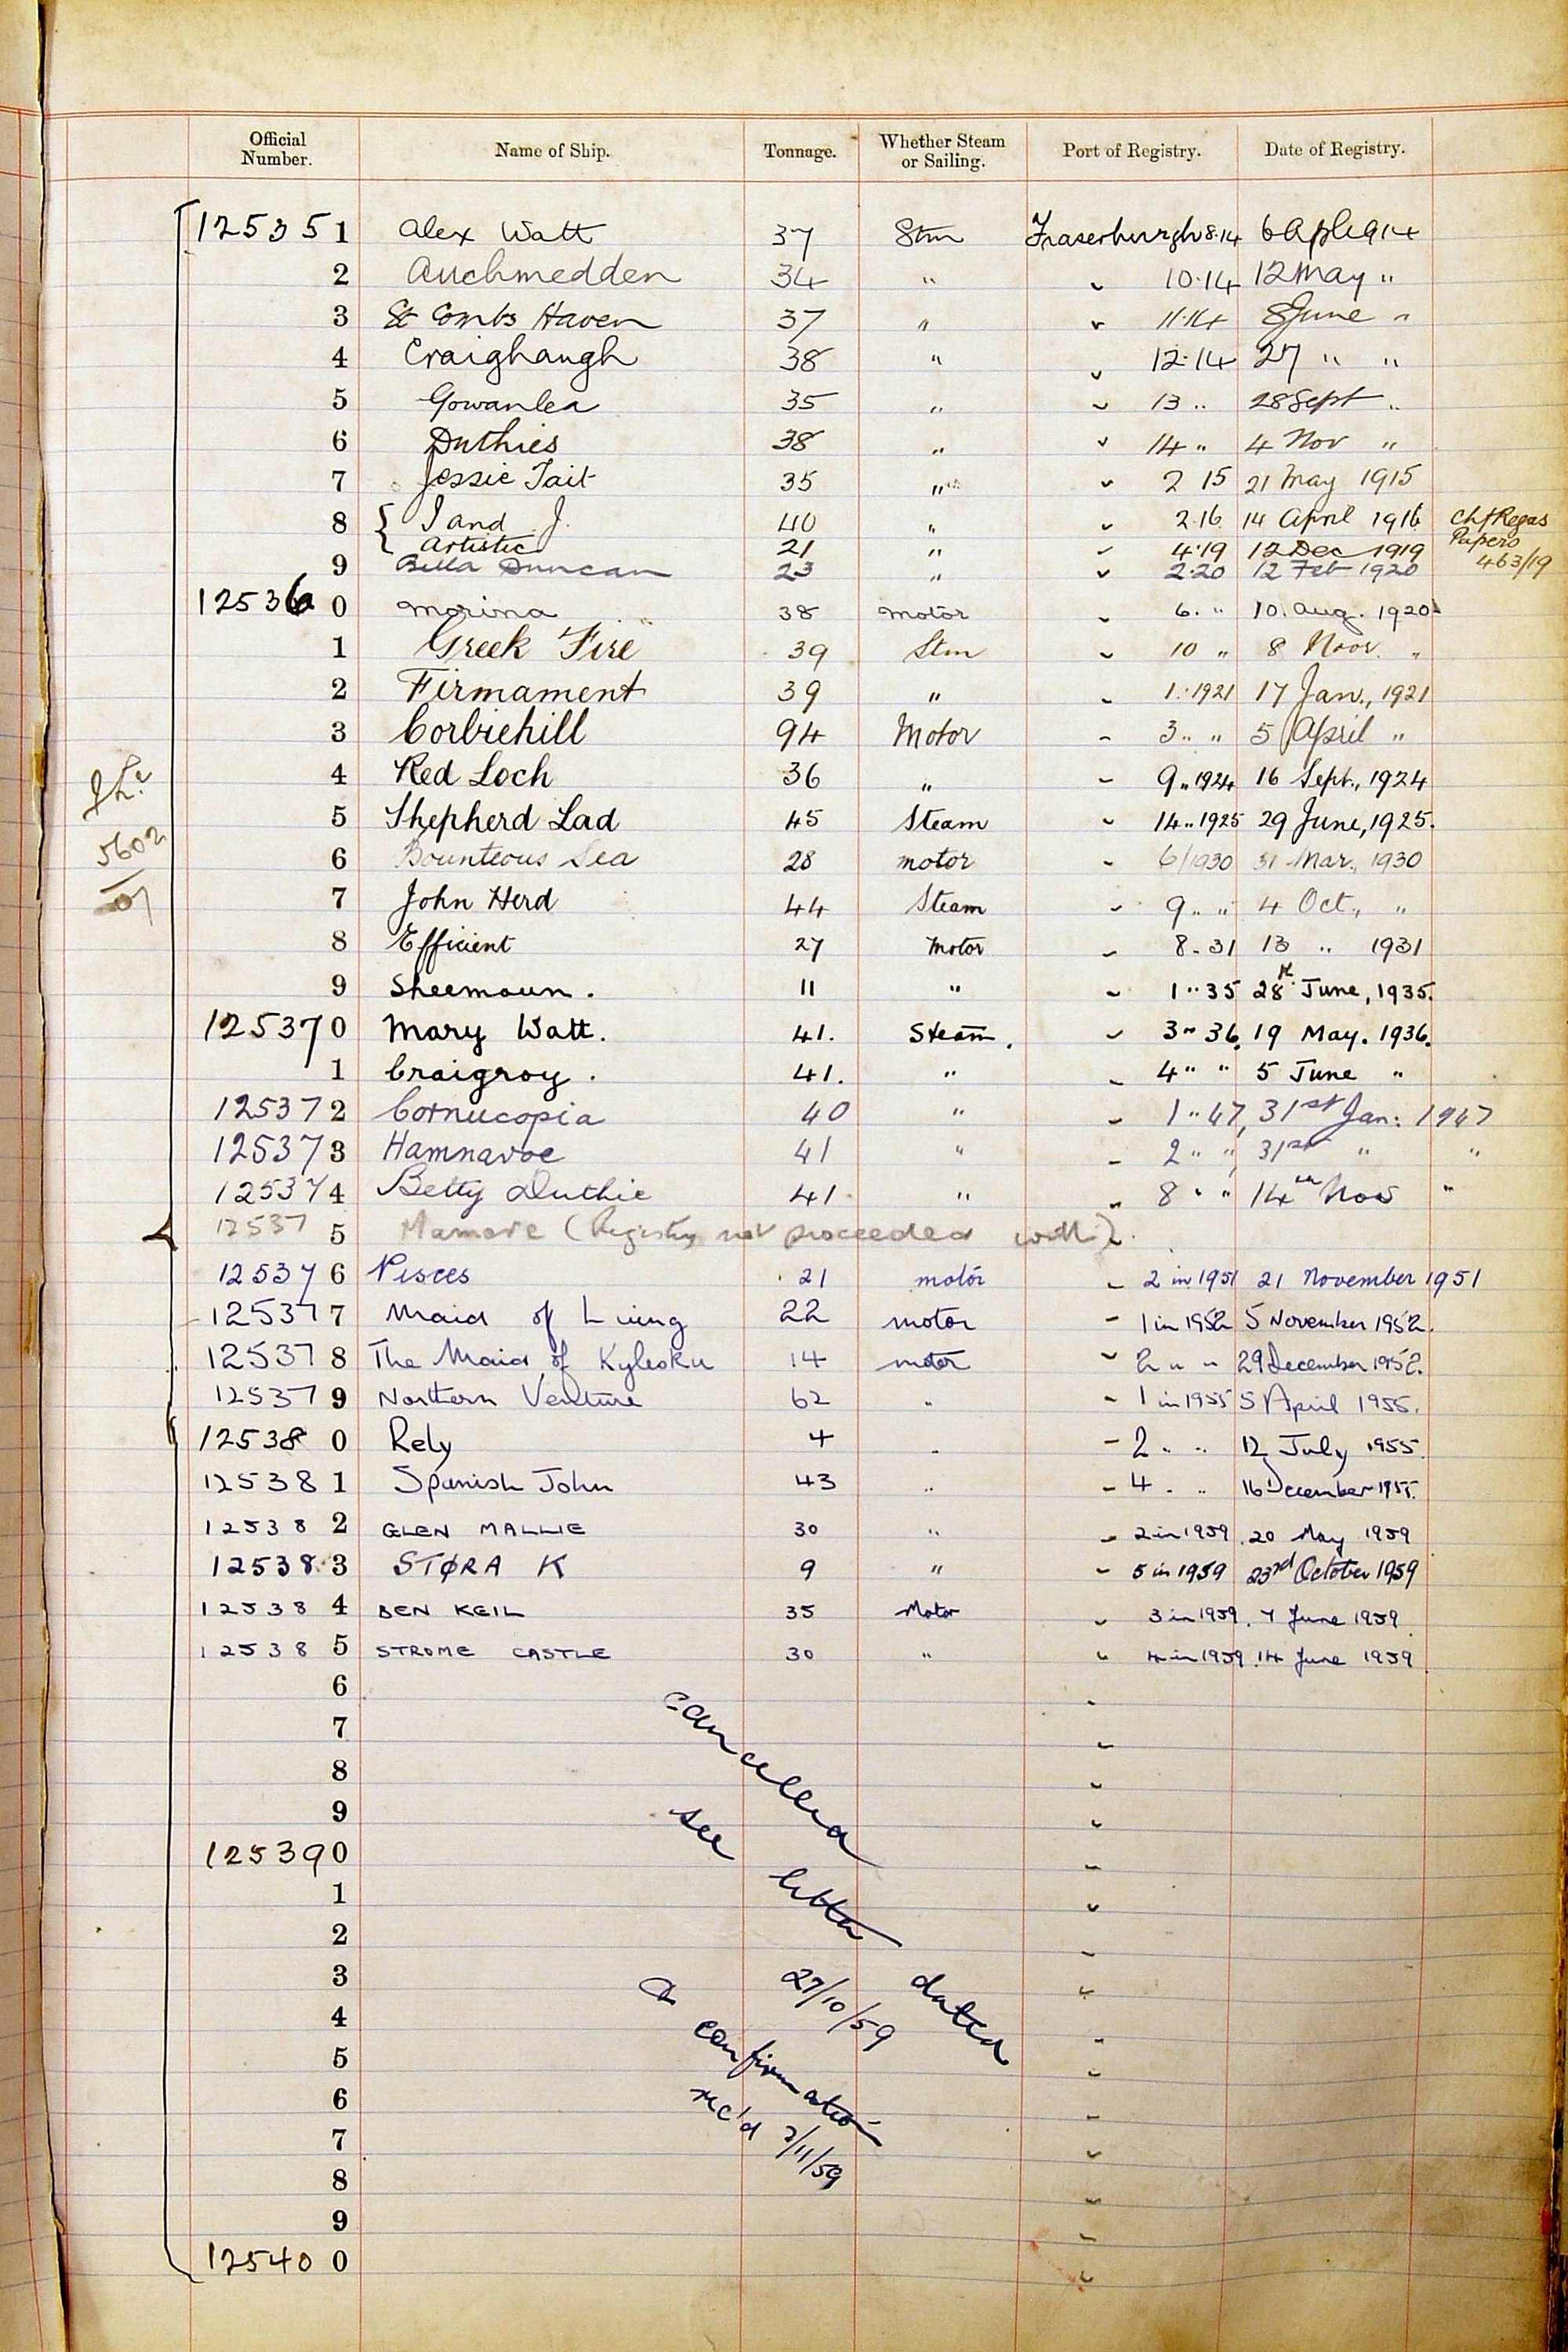 Official Number. Name of Ship. Tonnage. Whether Steam or Sailing. Port of Registry. Date of Registry.
125351 Alex Watt 37 Stm Fraserburgh 8.14 6 Apl 1914
2 Auchmedden 34 " " 10.14 12 May "
3 St Combs Haven 37 " " 11.14 8 June "
4 Craighaugh 38 " " 12.14 27 " "
5 Gowanlea 35 " " 13 " 28 Sept "
6 Duthies 38 " " 14 " 4 Nov "
7 Jessie Tait 35 " " 2 15 21 May 1915
8 { J and J. 40 " " 2.16 14 April 1916 Chf Regas
Artistic 21 " " 4.19 12 Dec 1919 Papers
9 Bella Duncan 23 " " 2.20 12 Feb 1920 463/19
125360 Morina 38 Motor " 6. " 10. Aug. 1920
1 Greek Fire 39 Stm " 10 " 8 Novr. "
2 Firmament 39 " " 1. 1921 17 Jan., 1921
3 Corbiehill 94 Motor " 3 " " 5 April "
4 Red Loch 36 " " 9 " 1924 16 Sept., 1924
5 Shepherd Lad 45 Steam " 14 " 1925 29 June, 1925.
6 Bounteous Sea 28 motor " 6/1930 31 Mar., 1930
7 John Herd 44 Steam " 9 " " 4 Oct., "
8 Efficient 27 Motor " 8.31 13 " 1931
9 Sheemaun. 11 " " 1 " 35 28th June, 1935.
125370 Mary Watt. 41. Steam. " 3 " 36. 19 May. 1936.
1 Craigroy. 41. " " 4 " " 5 June "
125372 Cornucopia 40 " " 1 " 47, 31st Jan: 1947
125373 Hamnavoe 41 " " 2 " " 31st " "
125374 Betty Duthie 41. " " 8 " " 14th Nov "
125375 Mamore (Registry not proceeded with) "
125376 Pisces 21 motor " 2 in 1951 21 November 1951
125377 Maid of Luing 22 motor " 1 in 1952 5 November 1952.
125378 The Maid of Kylesku 14 motor " 2 " " 29 December 1952.
125379 Northern Venture 62 " " 1 in 1955 5 April 1955.
125380 Rely 4 " " 2 " " 12 July 1955.
125381 Spanish John 43 " " 4 " " 16 December 1955.
125382 GLEN MALLIE 30 " " 2 in 1959 20 May 1959
125383 STØRA K 9 " " 5 in 1959 23rd October 1959
125384 BEN KEIL 35 Motor " 3 in 1959. 7 June 1959
125385 STROME CASTLE 30 " " 4 in 1959 14 June 1959
6 "
7 "
8 "
9 "
125390 "
1 "
2 "
3 "
4 "
5 "
6 "
7 "
8 "
9 "
125400 "
cancelled
see letter dated
27/10/59
& confirmation
rec'd 2/11/59
5602